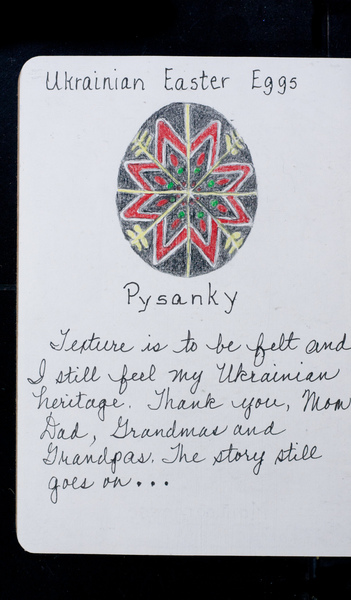 Ukrainian Easter Eggs
Pysanky
Texture is to be felt and
I still feel my Ukrainian
heritage. Thank you, Mom
Dad, Grandmas and
Grandpas. The story still
goes on...